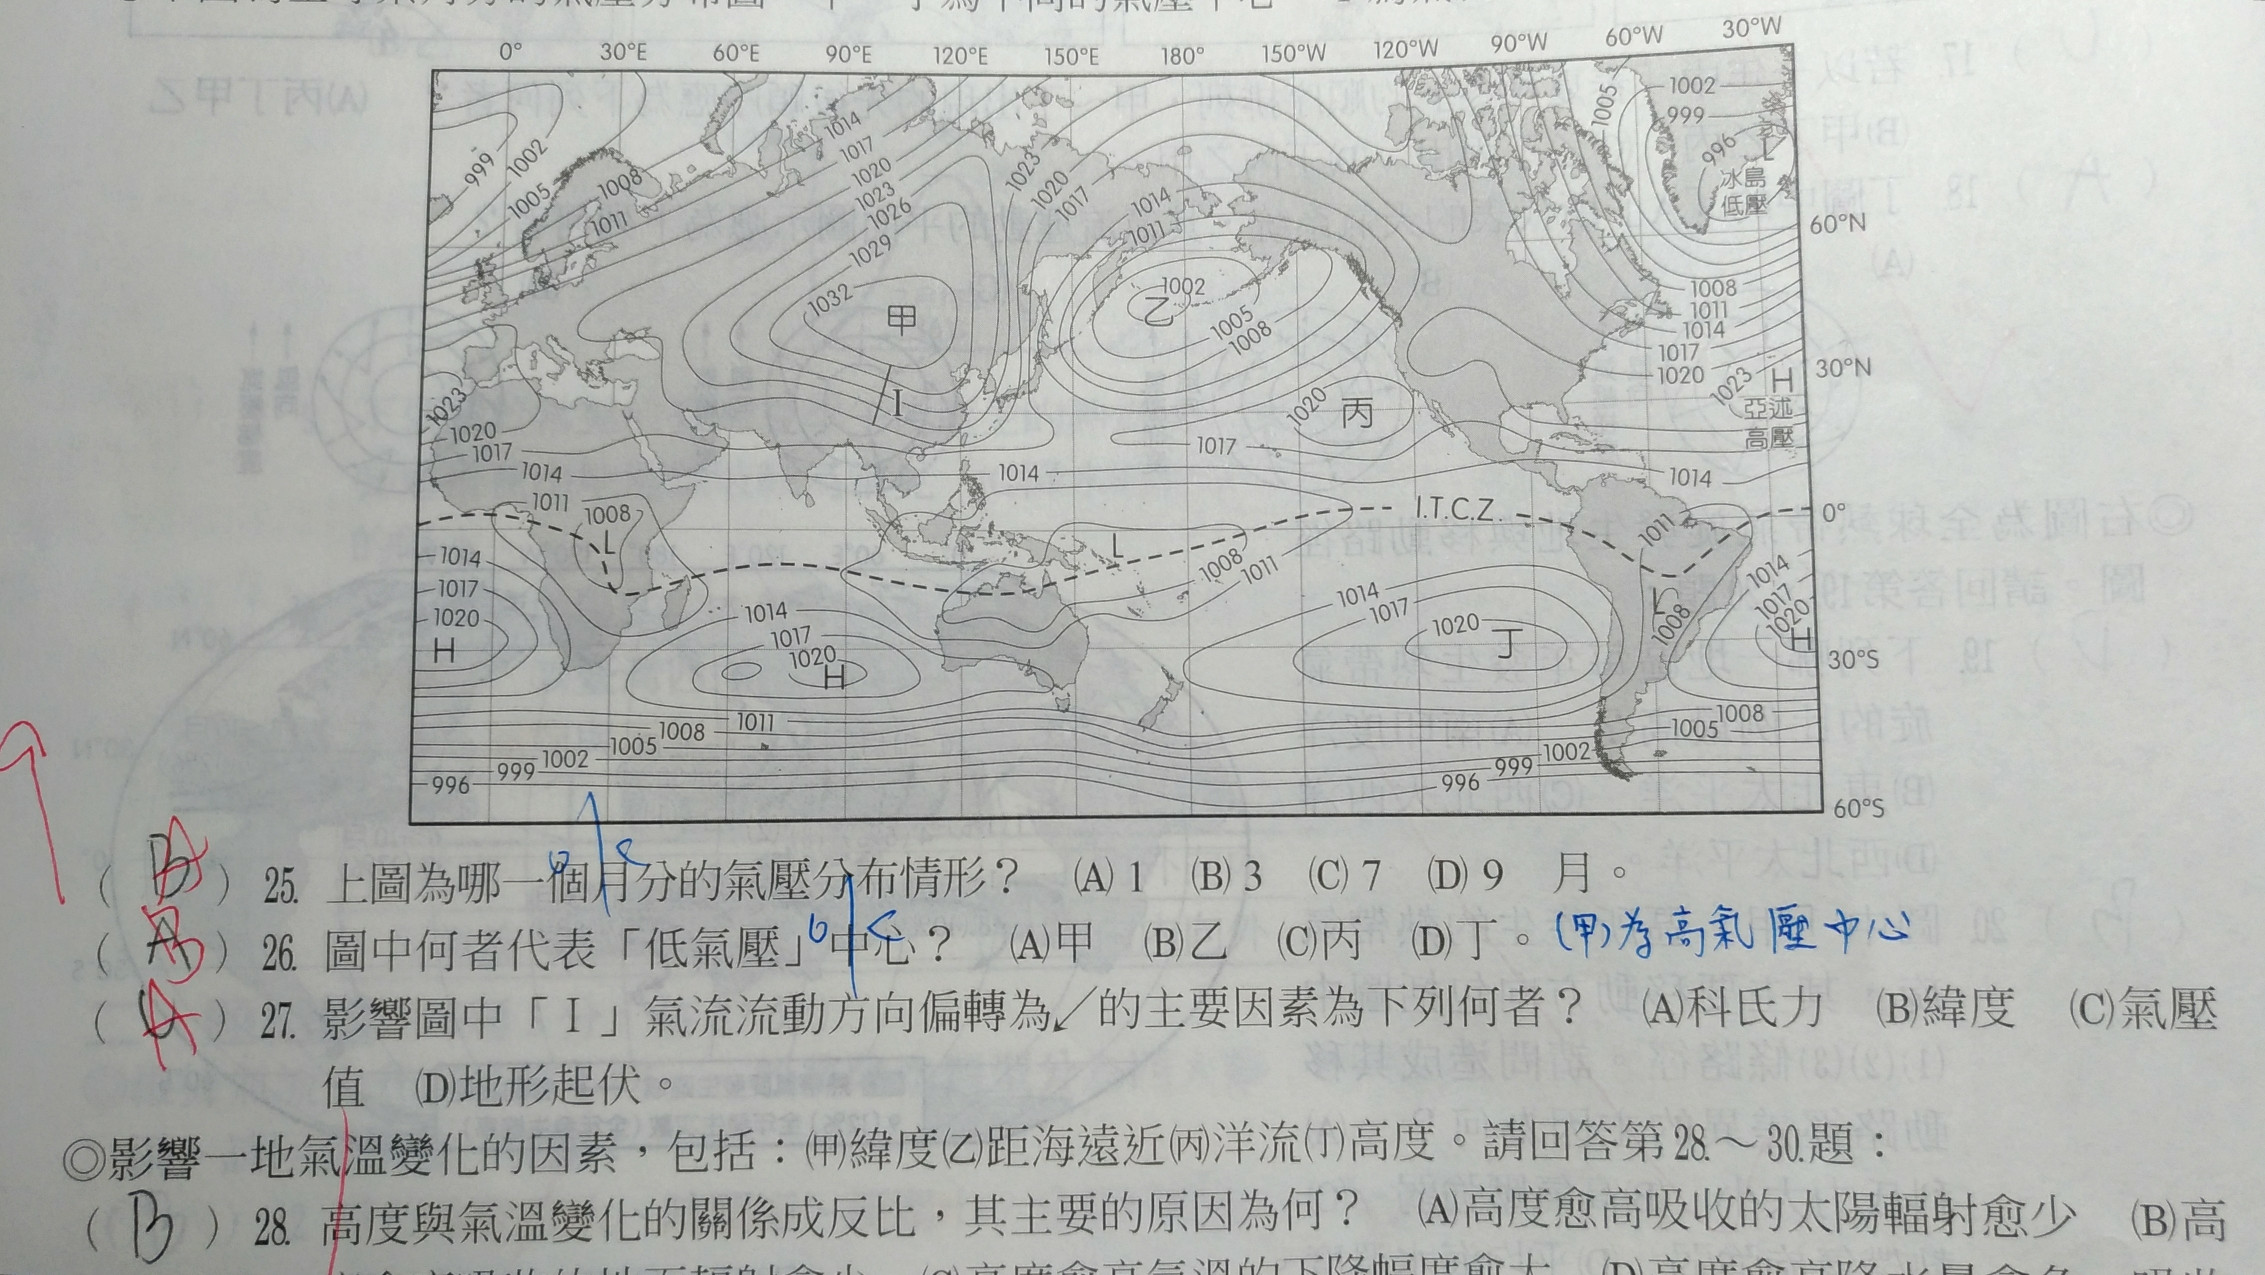 0° 30°E 60°E 90°E 120°E 150°E 180° 150°W 120°W 90°W 60°W 30°W
1002
999
996
L
冰島
低壓
1005
999
1002
1005
1008
1011
1014
1017
1020
1023
1026
1029
1032
甲
I
1023
1020
1017
1014
1011
1002
乙
1005
1008
60°N
1008
1011
1014
1017
1020
1023
H
亞述
高壓
30°N
1020
丙
1023
1020
1017
1014
1017
1014
1014
1011
1008
L
I.T.C.Z.
0°
1011
L
1008
1011
1014
1017
1020
H
1014
1017
1020
H
1014
1017
1020
丁
L
1008
1014
1017
1020
H
30°S
1011
1008
1005
1002
999
996
1008
1005
1002
999
996
60°S
( A ) 25. 上圖為哪一個月分的氣壓分布情形？ (A) 1 (B) 3 (C) 7 (D) 9 月。
( B ) 26. 圖中何者代表「低氣壓」中心？ (A)甲 (B)乙 (C)丙 (D)丁。(甲)為高氣壓中心
( A ) 27. 影響圖中「I」氣流流動方向偏轉為↙的主要因素為下列何者？ (A)科氏力 (B)緯度 (C)氣壓
值 (D)地形起伏。
◎影響一地氣溫變化的因素，包括：(甲)緯度(乙)距海遠近(丙)洋流(丁)高度。請回答第28.～30.題：
( B ) 28. 高度與氣溫變化的關係成反比，其主要的原因為何？ (A)高度愈高吸收的太陽輻射愈少 (B)高